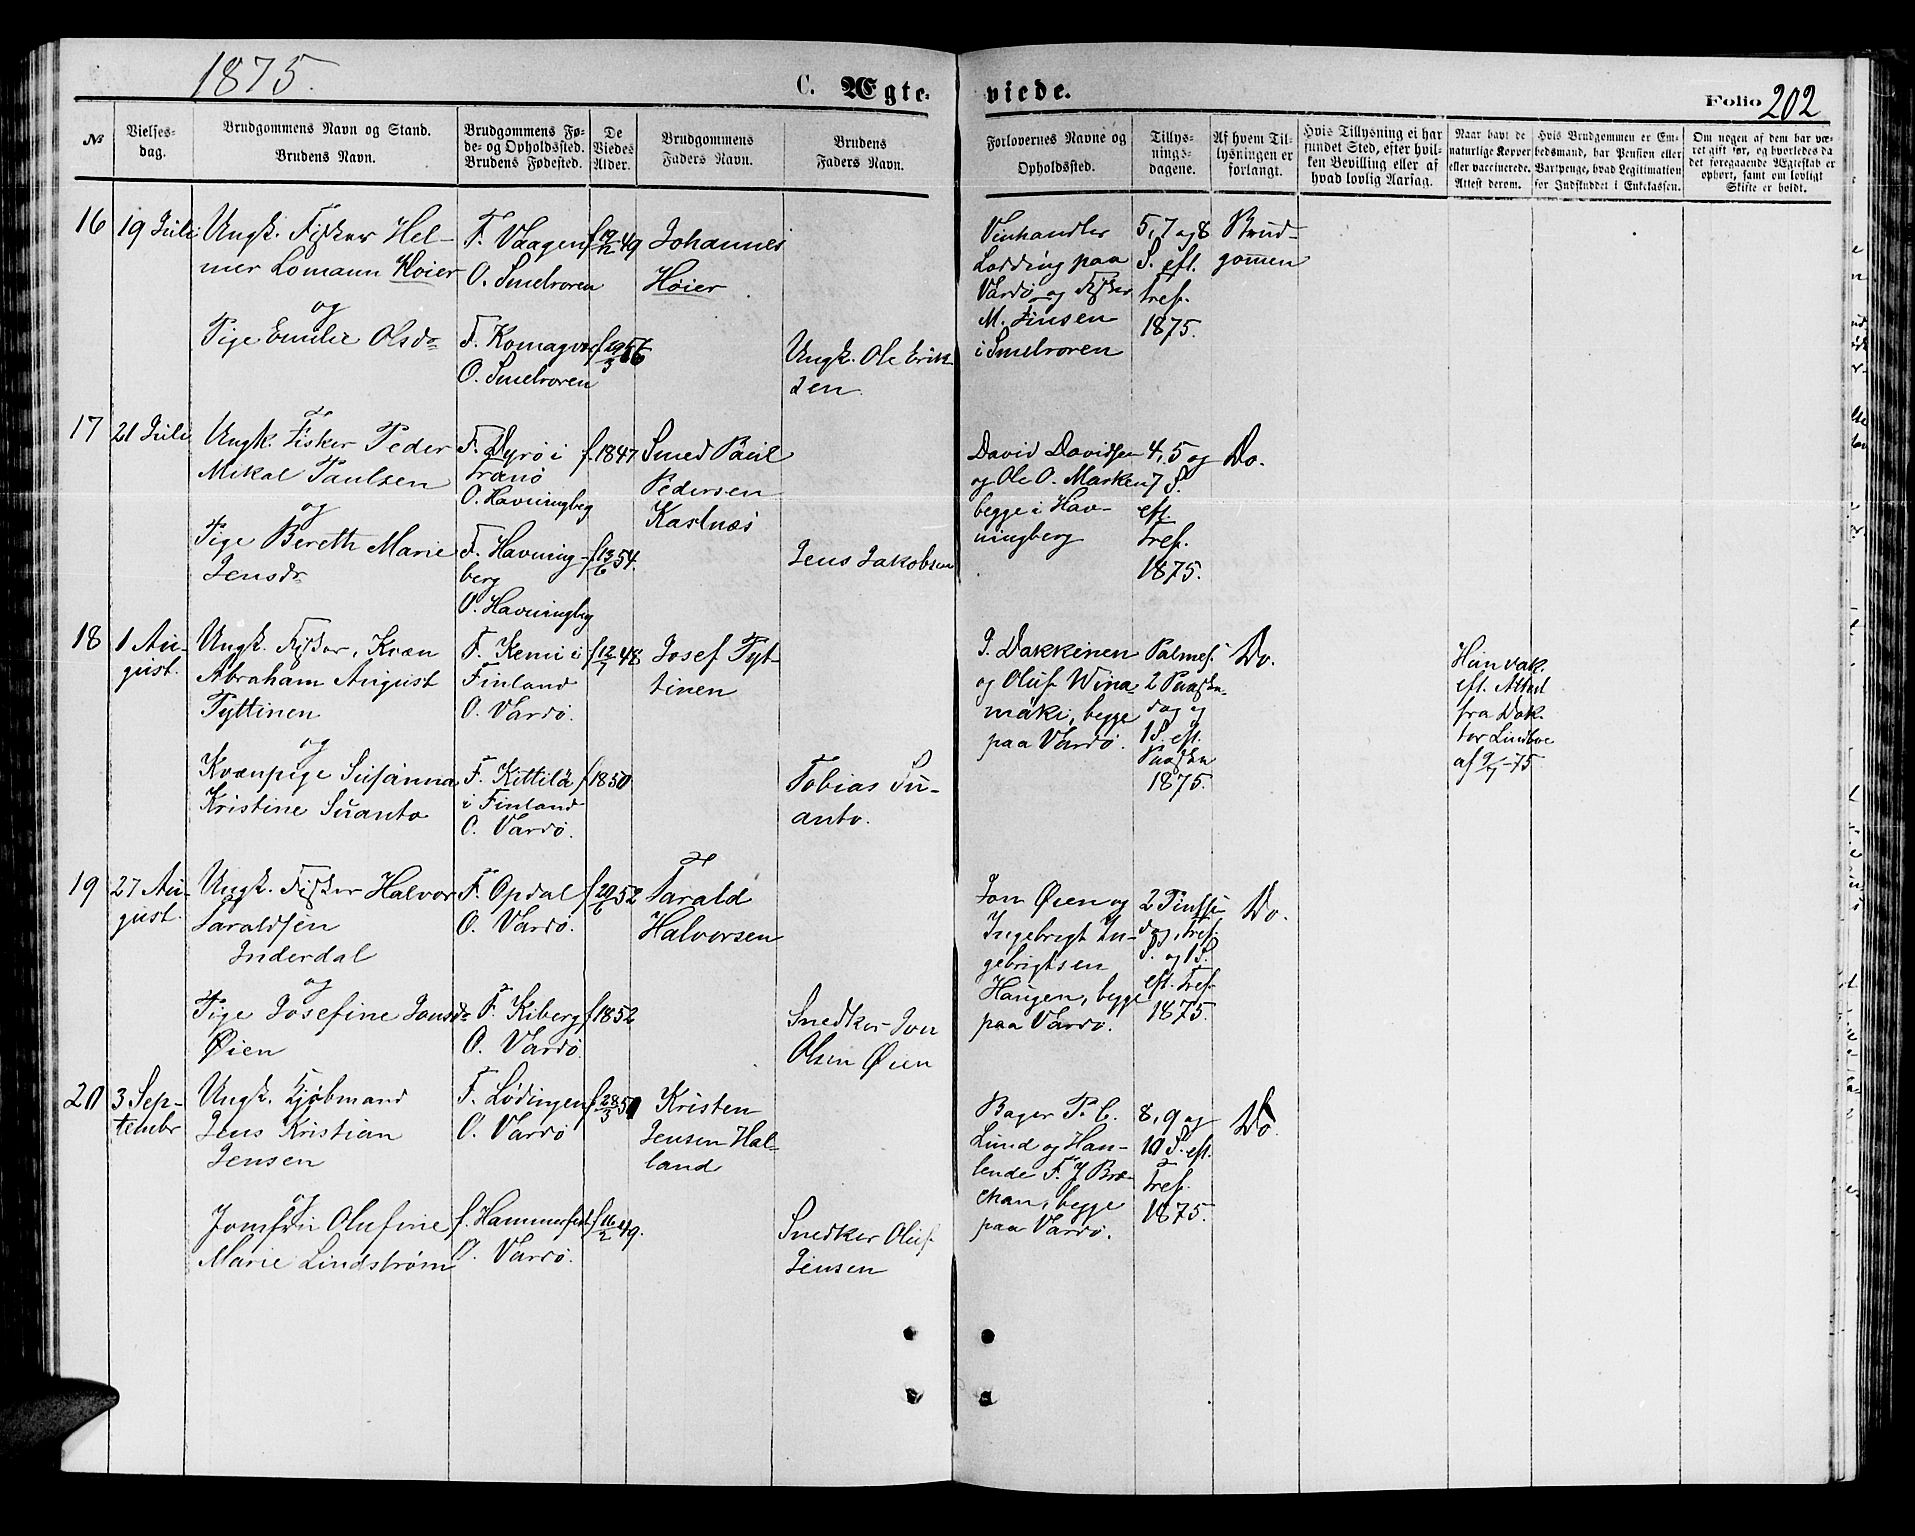 1875.
C. Ægte-
viede.
Folio 202
No
Vielses-
dag.
Brudgommens Navn og Stand.
Brudens Navn.
Brudgommens Fø-
de- og Opholdssted.
Brudens Fødested.
De
Viedes
Alder.
Brudgommens
Faders Navn.
Brudens
Faders Navn.
Forlovernes Navne og
Opholdssted.
Tillys-
nings-
dagene.
Af hvem Til-
lysningen er
forlangt.
Hvis Tillysning ei har
fundet Sted, efter hvil-
ken Bevilling eller af
hvad lovlig Aarsag.
Naar havt de
naturlige Kopper
eller vaccinerede.
Attest derom.
Hvis Brudgommen er Em-
bedsmand, har Pension eller
Vartpenge, hvad Legitimation
for Indskuddet i Enkekassen.
Om nogen af dem har væ-
ret gift før, og hvorledes da
det foregaaende Ægteskab er
ophørt, samt om lovligt
Skifte er holdt.
16
19 Juli
Ungk. Fisker Hel-
mer Lomann Høier
og
Pige Emilie Olsdr
F. Vaagen
O. Smelroren
F. Komagvær
O. Smelroren
f 19/12 49
f 20/3 56
Johannes
Høier
Ungk. Ole Erik-
sen
Vinhandler
Lording paa
Vardø og Fisker
M. Jensen
i Smelroren
5, 7 og 8
S. eft.
Tref.
1875.
Brud-
gommen
17
21 Juli
Ungk. Fisker Peder
Mikal Paulsen
og
Pige Bereth Marie
Jensdr
F. Dyrø i
Tranø
O. Havningbeg
F. Havning-
berg
O. Havningbeg
f. 1847
f 13/6 54.
Smed Paul
Pedersen
Kastnæs
Jens Jakobsen
David Davidsen
og Ole O. Marken
begge i Hav-
ningberg
4, 5 og
7 S.
eft.
Tref.
1875.
Do.
18
1 Au-
gust.
Ungk. Fisker, Kvæn
Abraham August
Pyttinen
og
Kvænpige Susanna
Kristine Suanto
F. Kemi i
Finland
O. Vardø.
F. Kittilä
i Finland
O. Vardø.
f 12/7 48
f 1850
Josef Pyt-
tinen
Tobias Su-
anto.
J. Dakkinen
og Oluf Wina
mäki, begge
paa Vardø.
Palmes.
2 Paaske-
dag og
1 S. eft.
Paaske
1875.
Do.
Hun vak.
eft. Attest
fra Dok-
tor Lindboe
af 9/7-75
19
27 Au-
gust.
Ungk. Fisker Halvor
Taraldsen
Inderdal
og
Pige Josefine Jonsdr
Øien
F. Opdal
O. Vardø.
F. Kiberg
O. Vardø.
f 20/6 52
f 1852
Tarald
Halvorsen
Snedker Jon
Olsen Øien
Jon Øien og
Ingebrigt In-
gebrigtsen
Haugen, begge
paa Vardø.
2 Pintse-
dag, Tref.
S. og 1 S.
eft. Tref.
1875.
Do.
20
3 Sep-
tembr
Ungk. Kjøbmand
Jens Kristian
Jensen
og
Jomfru Olufine
Marie Lindstrøm
F. Lødingen
O. Vardø
f. Hammerfest
O. Vardø.
f 28/3 50
f 16/2 49.
Kristen
Jensen Hal-
land
Snedker Oluf
Jensen
Bager P. C.
Lund og Han-
lende F. J Bro-
chan, begge
paa Vardø.
8, 9 og
10 S. eft.
Tref.
1875.
Do